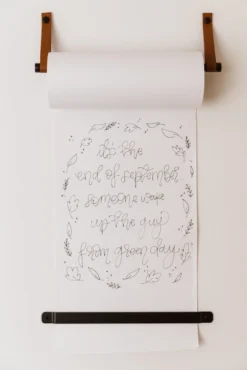 it's the
end of september
someone wake
up the guy
from green day